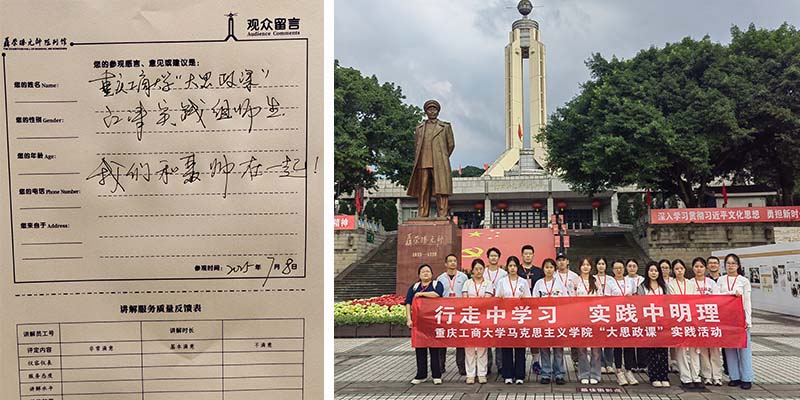 聂荣臻元帅陈列馆
观众留言
Audience Comments
您的参观感言、意见或建议是:
您的姓名Name:
您的性别Gender:
您的年龄Age:
您的电话Phone Number:
您来自于Address:
重庆工商大学“大思政课”
江津实践组师生
我们和聂帅在一起!
参观时间: 2025 年 7 月 8 日
讲解服务质量反馈表
讲解员工号
讲解时长
评定内容
非常满意
基本满意
不满意
仪容仪表
服务态度
讲解水平
聂荣臻元帅
1899—1992
深入学习贯彻习近平文化思想 勇担新时
行走中学习 实践中明理
重庆工商大学马克思主义学院“大思政课”实践活动